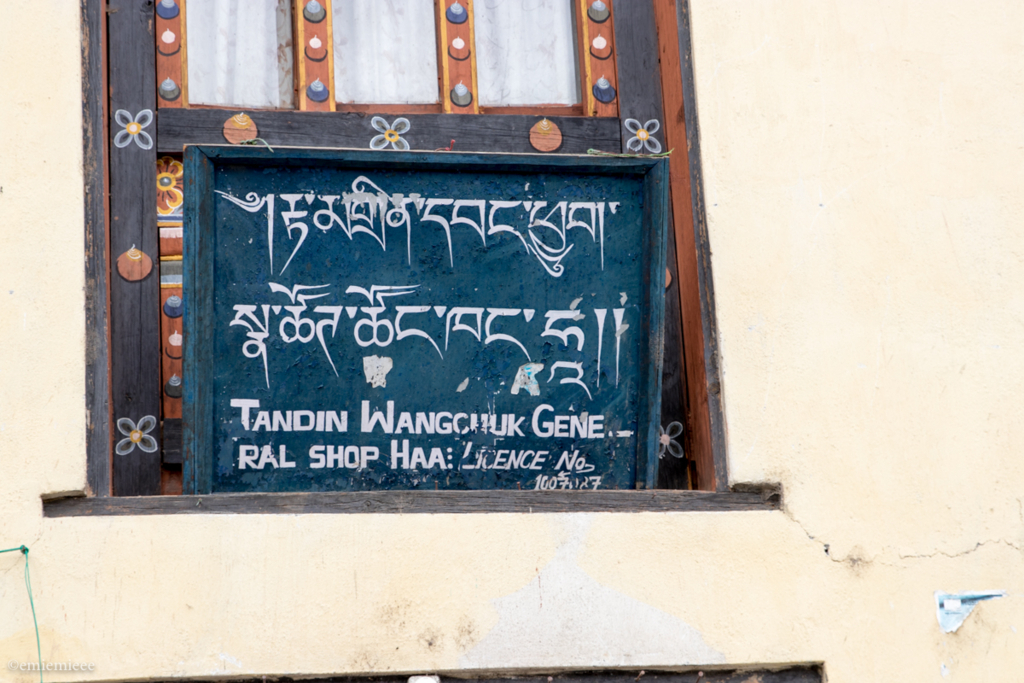 ༄། རྟ་མགྲིན་དབང་ཕྱུག་
སྣ་ཚོཊ་ཚོང་ཁང་ ཧཱ།།
TANDIN WANGCHUK GENE
RAL SHOP HAA: LICENCE No
©emiemieee